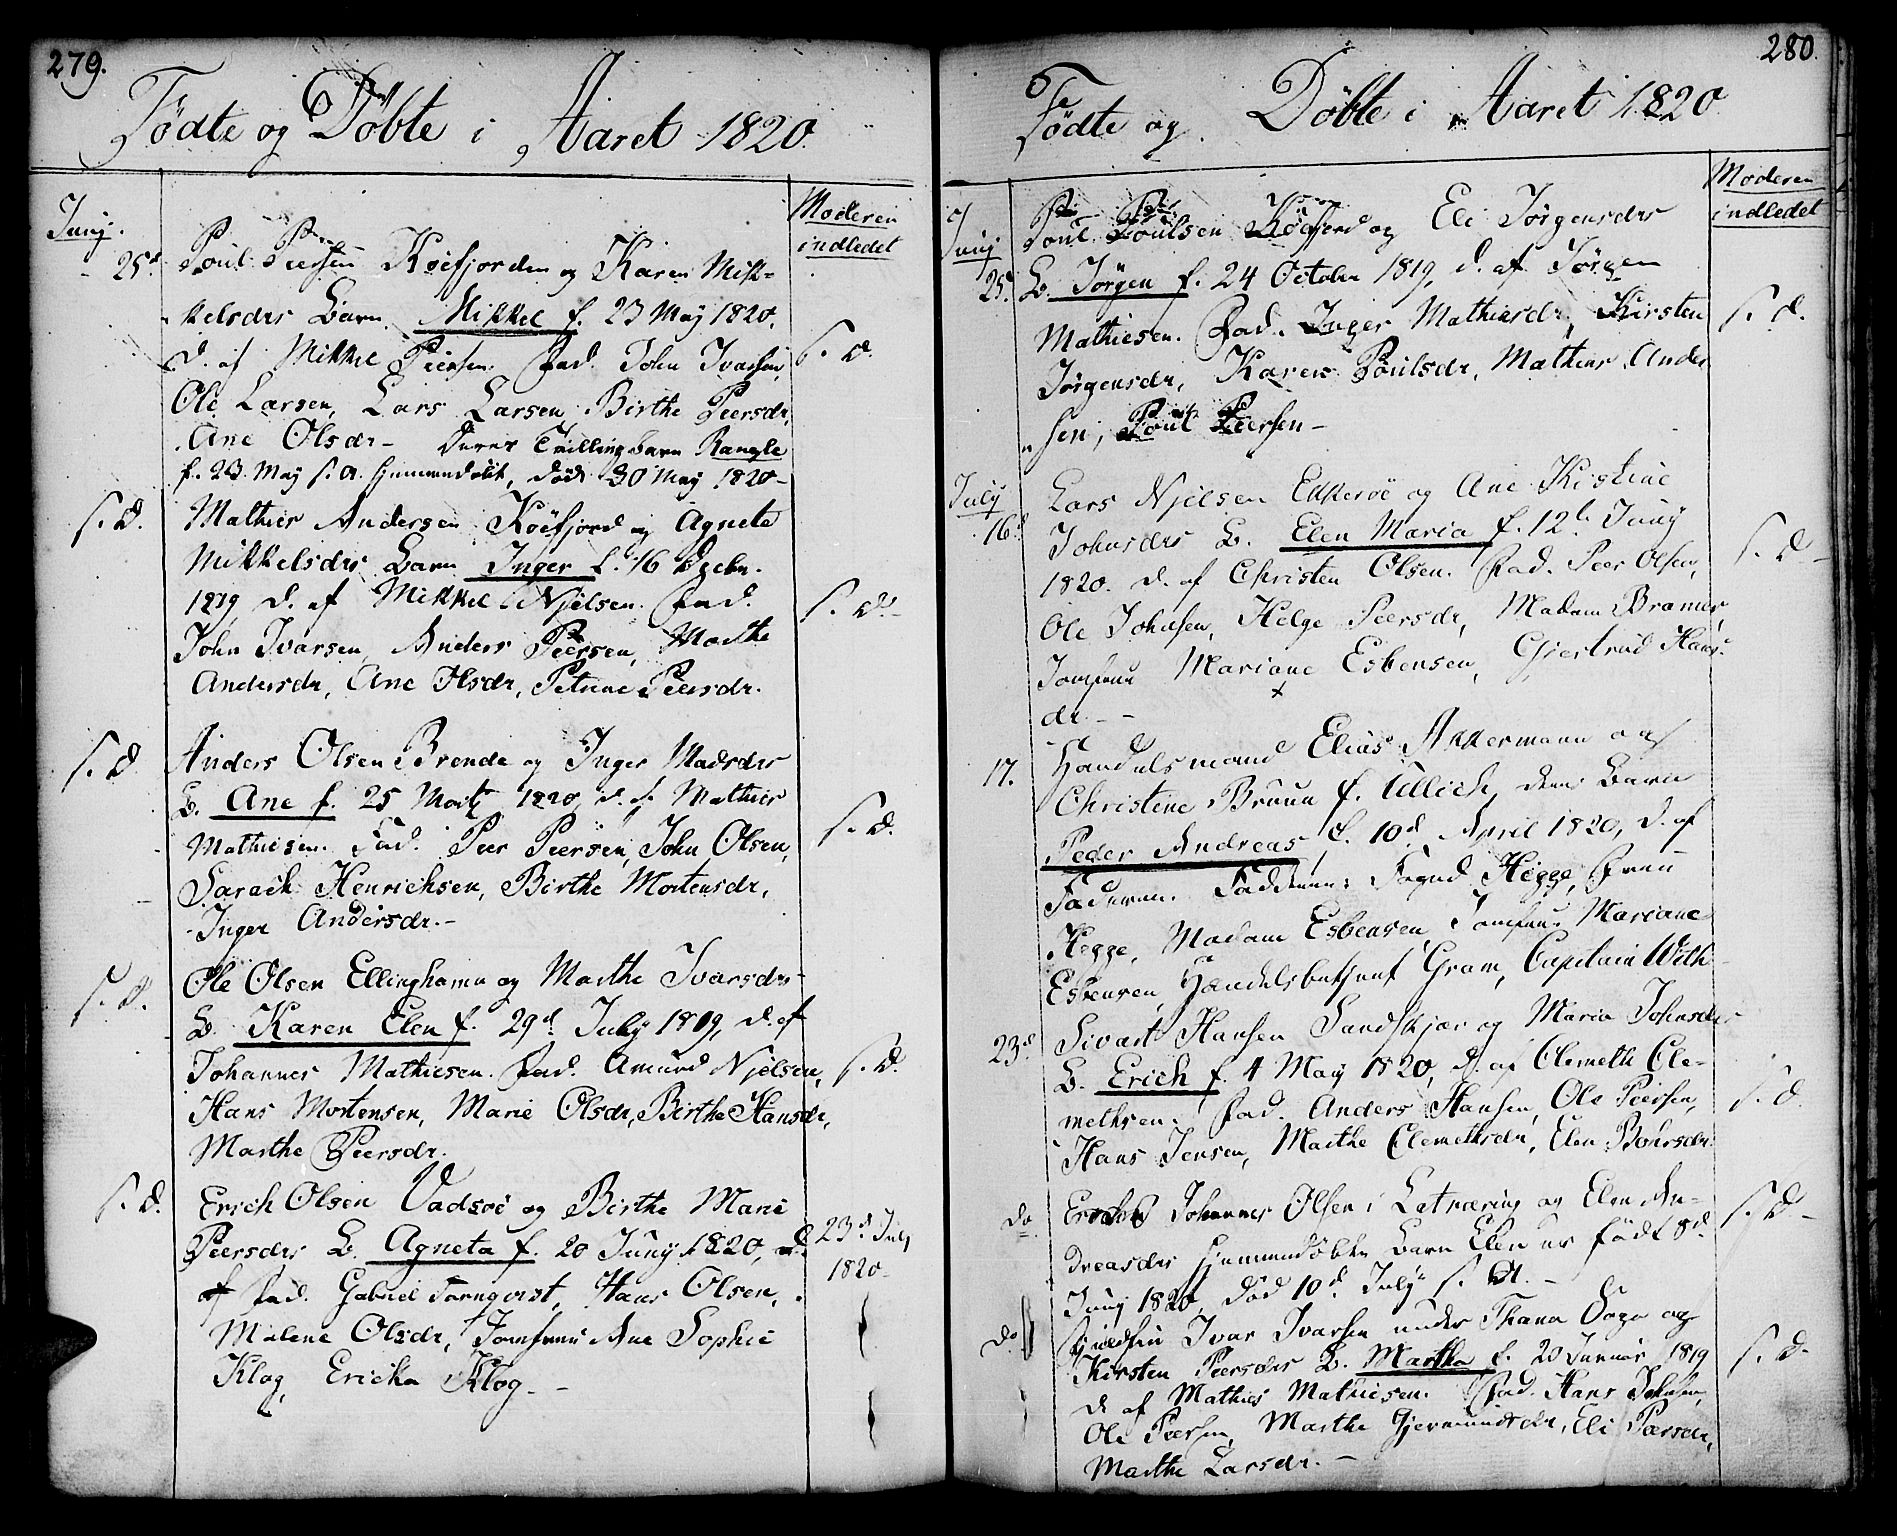 279.
Fødte og Døbte i Aaret 1820.
Moderen
indledet
Juny.
25d Poul Peersen Koefjorden og Karen Mik-
kelsdrs Barn Mikkel f. 23 May 1820.
D. af Mikkel Peersen. Fad. John Ivarsen, s. D.
Ole Larsen, Lars Larsen, Birthe Peersdr,
Ane Olsdr - Deres Tvillingbarn Rangle
f. 23 May s. A. hjemmedøbt, død 30 May 1820 -
s. D. Mathies Andersen Koefjord og Agneta
Mikkelsdrs Barn Inger f. 16 Decbr.
1819 D. af Mikkel Njelsen. Fad. s. D.
John Ivarsen, Anders Peersen, Marthe
Andersdr, Ane Olsdr, Petrine Peersdr.
s. D. Anders Olsen Brende og Inger Madsdrs
B. Ane f. 25 Martz 1820, d. af Mathies
Mathiesen. Fad. Peer Peersen, John Olsen, s. D.
Sarach Henrichsen, Birthe Mortensdr,
Inger Andersdr. -
s. D. Ole Olsen Ellinghamn og Marthe Ivarsdrs
B. Karen Elen f. 29d July 1819, D. af
Johannes Mathiesen. Fad. Amund Njelsen, s. D.
Hans Mortensen, Marie Olsdr, Birthe Hansdr,
Marthe Peersdr.
s. D. Erich Olsen Vadsøe og Birthe Marie
Peersdrs B. Agneta f. 20 Juny 1820, d. 23d July
1820 -
af Fad. Gabriel Tornqvist, Hans Olsen,
Malene Olsdr, Jomfrue Ane Sophie
Klog, Ericka Klog. -
280
Fødte og Døbte i Aaret 1820
Moderen
indledet
Juny
Poul Poulsen Køefjord og Eli Jørgensdrs
25d B. Jørgen f. 24 October 1819, d. af Jørgen
Mathiesen. Fad. Inger Mathiesdr, Kirsten s. D.
Jørgensdr, Karen Poulsdr, Mathies Ander
sen, Poul Peersen -
July
Lars Njelsen Ekkerøe og Ane Kistine
16d Johnsdrs B. Elen Maria f. 12te Juny
1820. D. af Christen Olsen. Fad. Peer Olsen, s. D -
Ole Johnsen, Helge Peersdr, Madam Bramer,
Jomfrue Mariane Esbensen, Gjertrud Hans
dr. - -
17. Handelsmand Elias Akkermann og
Christine Bruun f. Ullich, deres Barn
Peder Andreas f. 10d April 1820, d. af
Faderen. Fadderne: Foged Hegge, Frue
Hegge, Madam Esbensen, Jomfrue Mariane
Esbensen, Handelsbetjent Gram, Capitain With
23d Sivart Hansen Sandskjær og Maria Johnsdrs
B. Erich f. 4 May 1820, d. af Clemeth Cle-
methsen. Fad. Anders Hansen, Ole Peersen, s. D.
Hans Jensen, Marthe Clemethsdr, Elen
do Johannes Olsen i og Elen An- s. D. -
dreasdrs hjemmedøbte Barn Elen er født 8d
Juny 1820, død 10d July s. A. -
do Ivar Ivarsen under Thana Sogn og
Kirsten Peersdrs B. Martha f. 20 Januar 1819 s. D.
D. af Mathies Mathiesen. Fad. Hans Johnsen,
Ole Peersen, Marthe Gjermundsdr, Eli Peersdr,
Marthe Larsdr. -